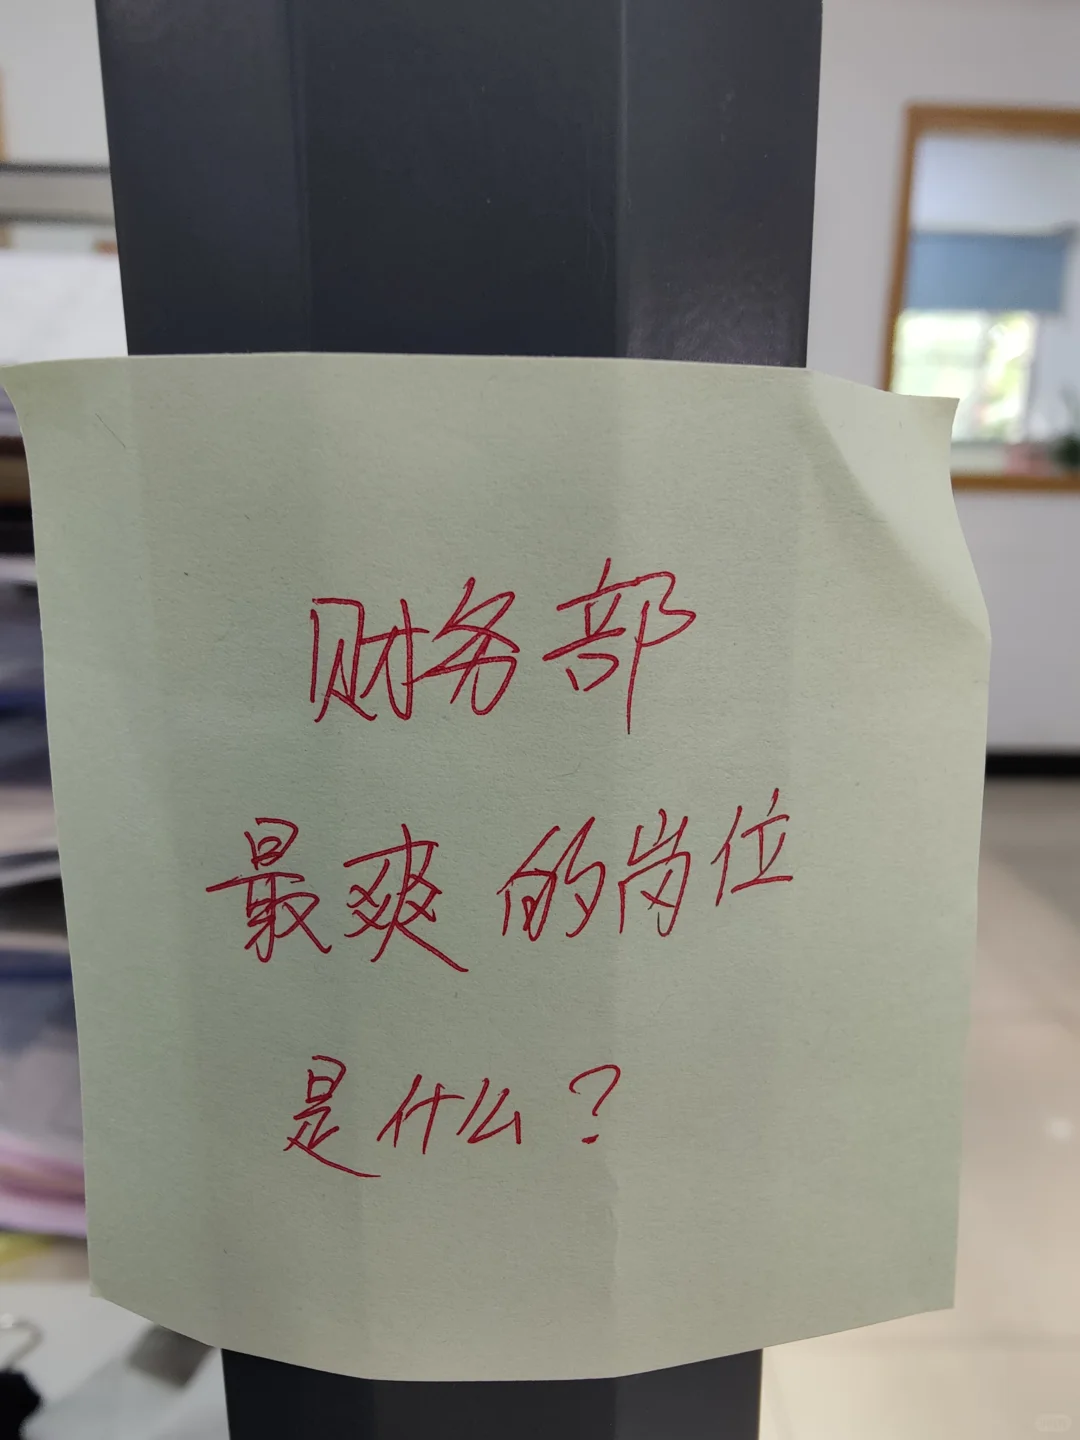 财务部
最爽的岗位
是什么？